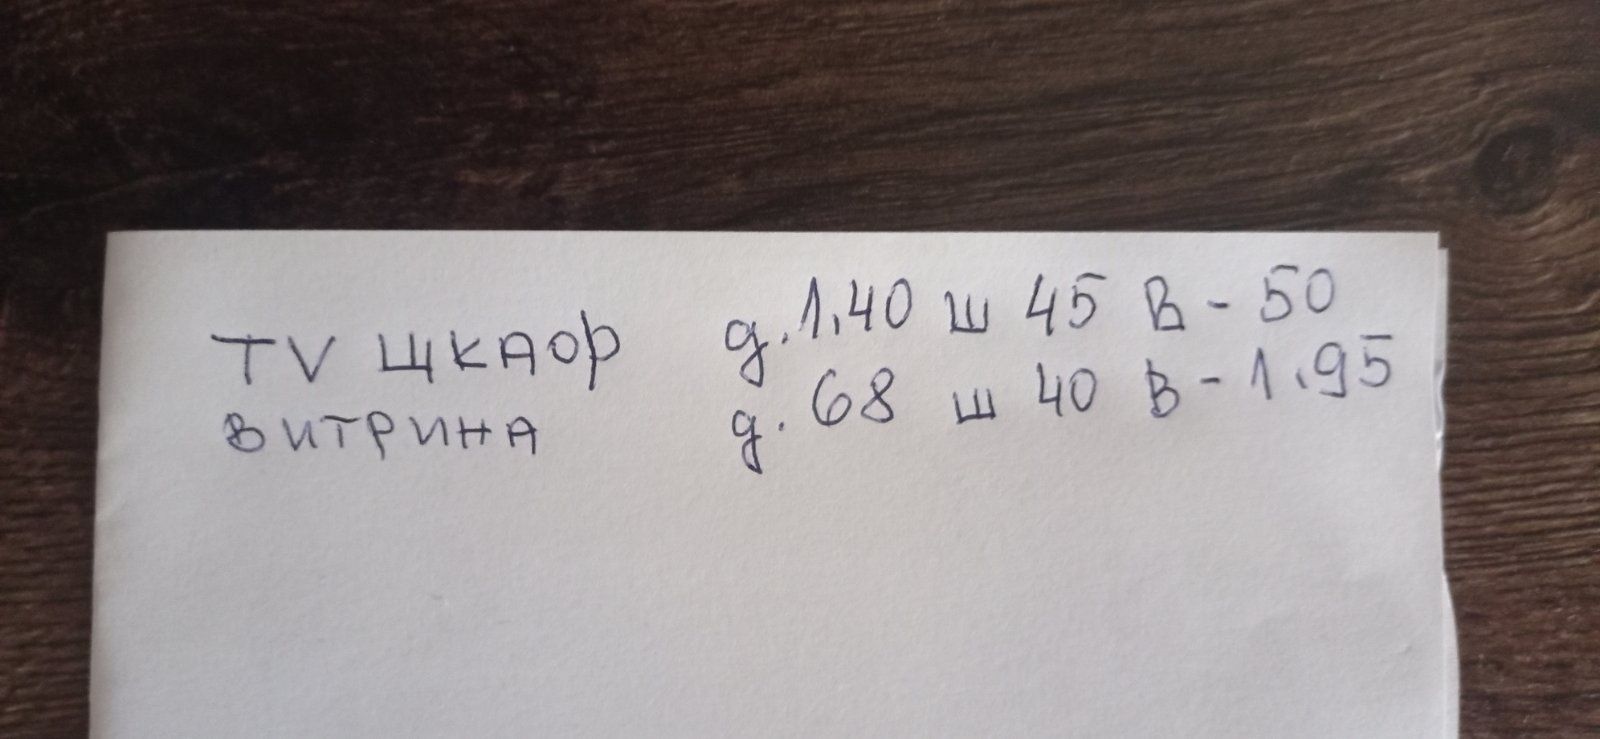 TV ЩКАОР д. 1,40 ш 45 В - 50
ВИТРИНА д. 68 ш 40 В - 1.95